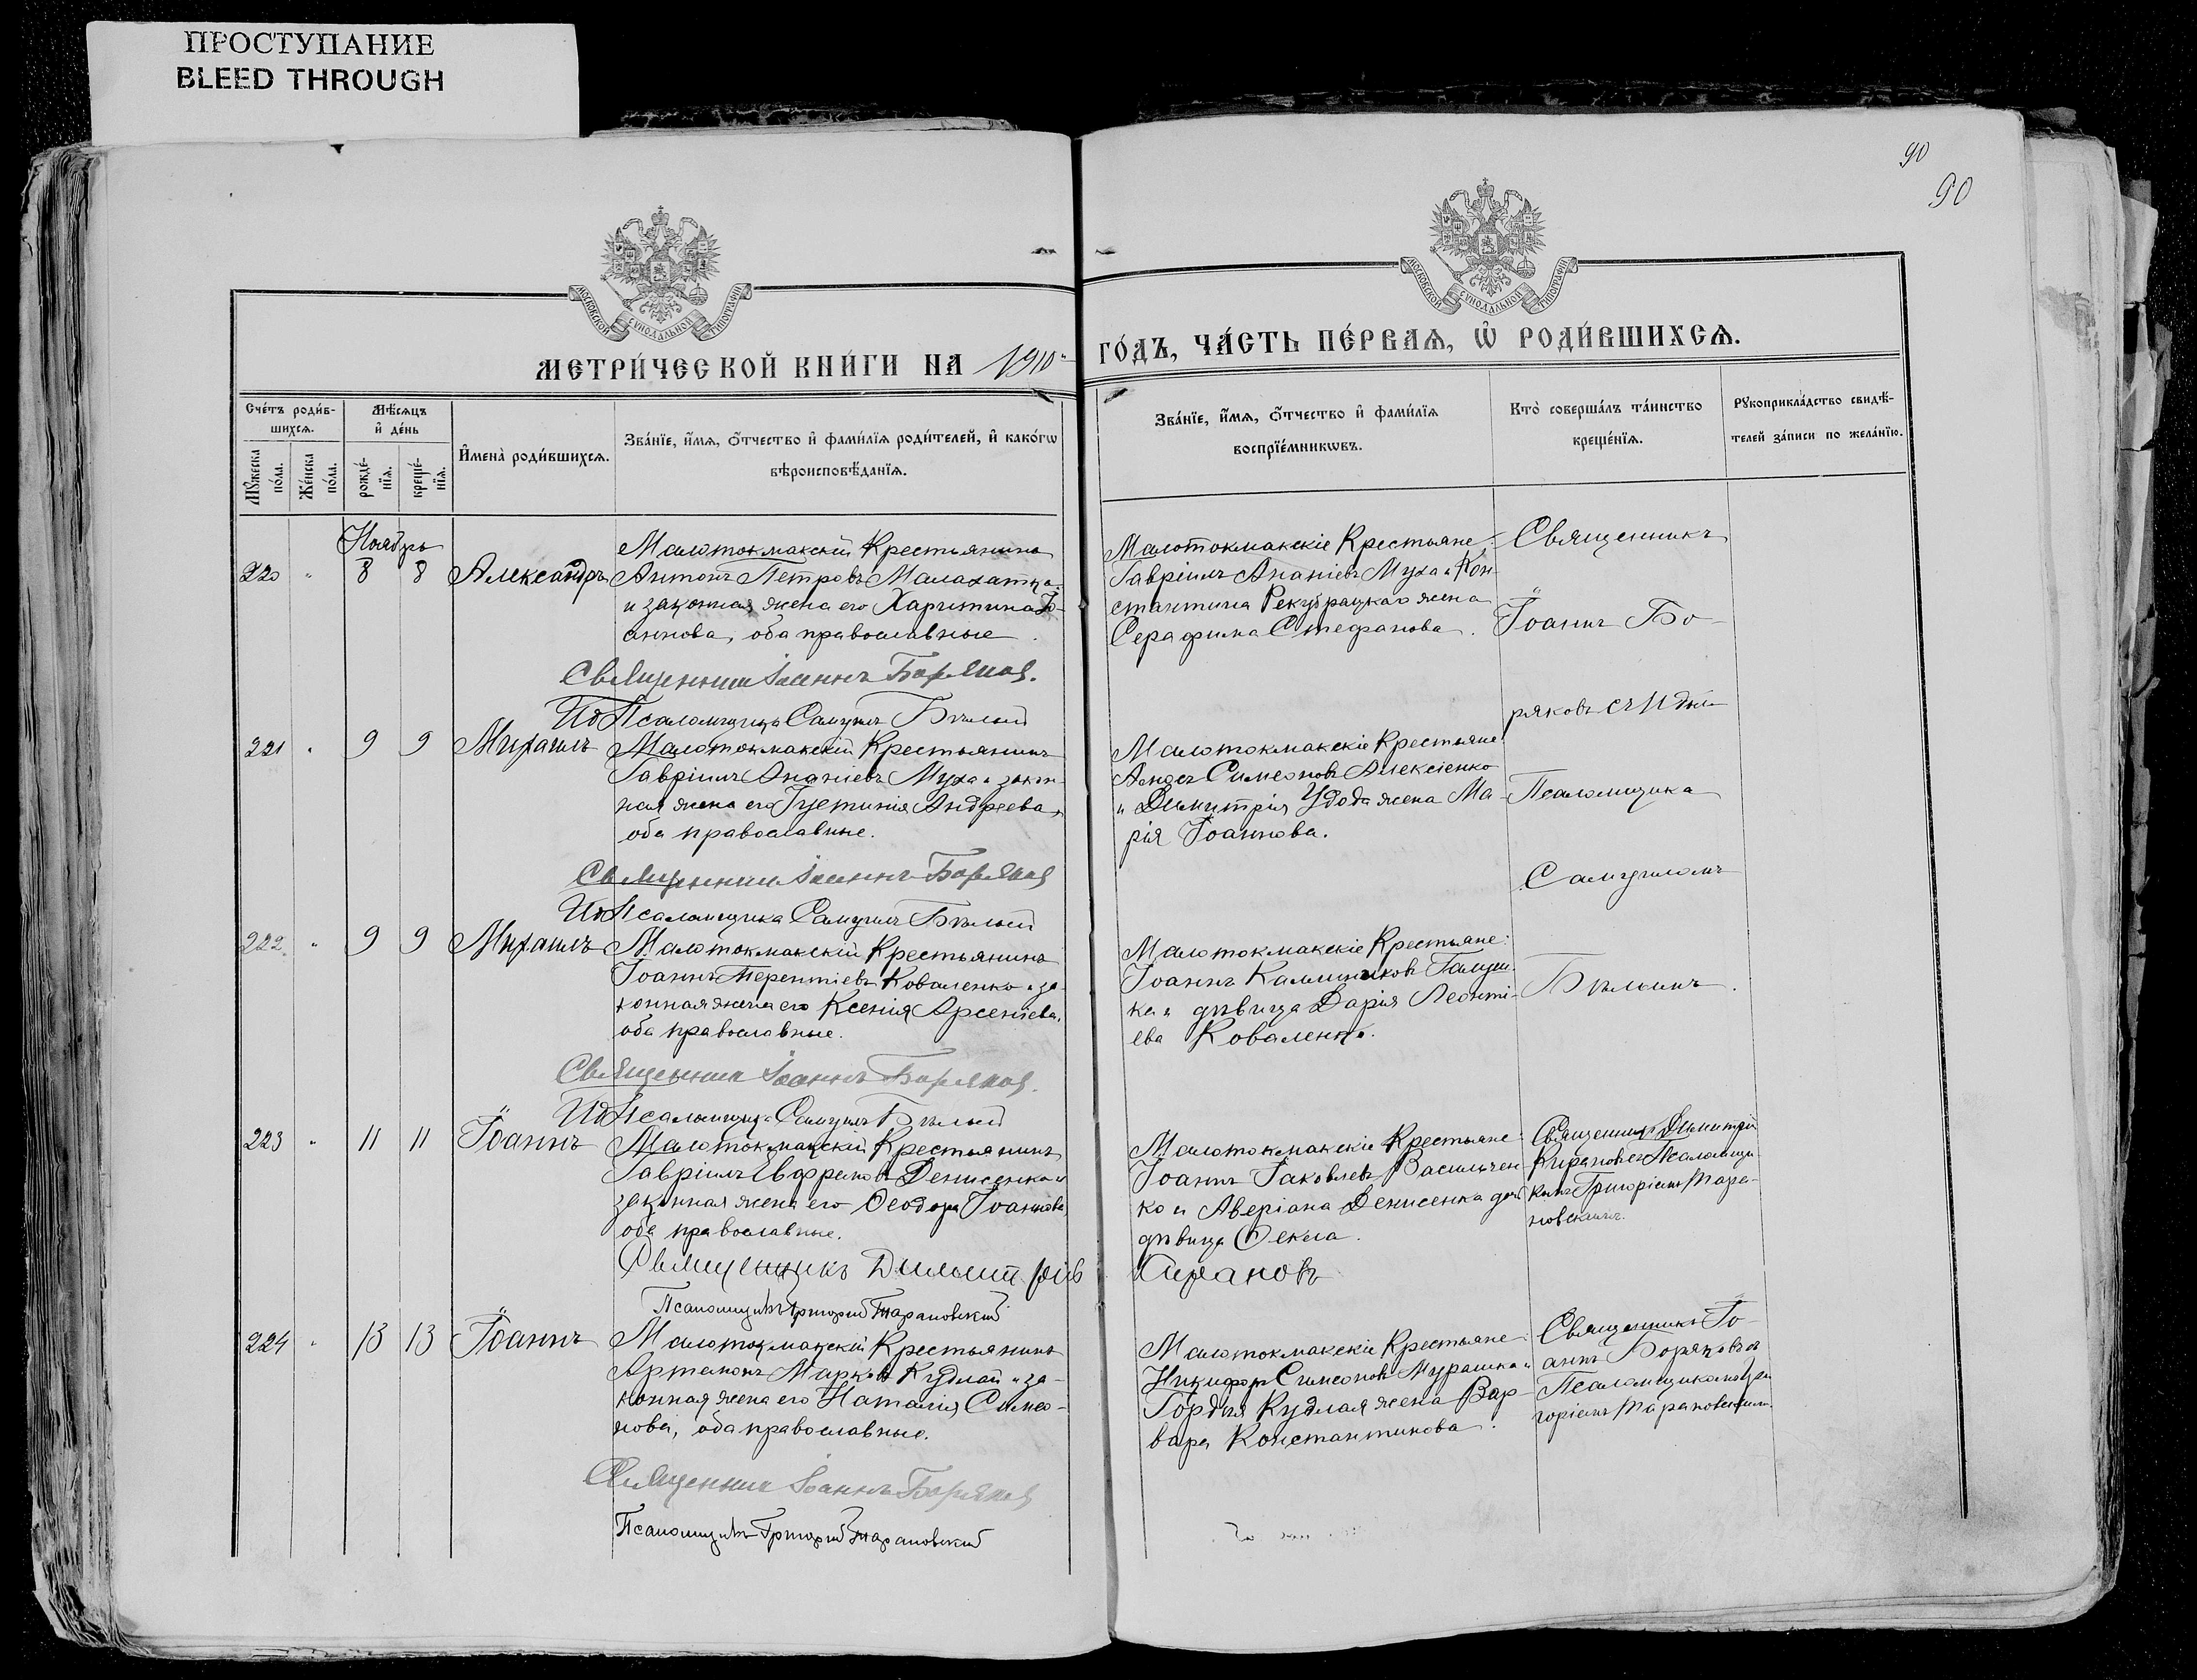 ПРОСТУПАНИЕ
BLEED THROUGH
90
90
МОСКОВСКОЙ СѴНОДАЛЬНОЙ ТИПОГРАФІИ
МОСКОВСКОЙ СѴНОДАЛЬНОЙ ТИПОГРАФІИ
МЕТРИ́ЧЕСКОЙ КНИ́ГИ НА 1910
ГО́ДЪ, ЧА́СТЬ ПЕ́РВАѦ, Ѡ҆ РОДИ́ВШИХСѦ.
Сче́тъ роди́в-
шихсѧ.
Мꙋ́жеска по́ла.
Же́нска по́ла.
Мѣ́сѧцъ
и҆ де́нь
рожде́-
нїѧ.
креще́-
нїѧ.
И҆мена̀ роди́вшихсѧ.
Зва́нїе, и҆́мѧ, ѻ҆́тчество и҆ фами́лїѧ роди́телей, и҆ како́гѡ
вѣроисповѣ́данїѧ.
Зва́нїе, и҆́мѧ, ѻ҆́тчество и҆ фами́лїѧ
воспрїе́мникѡвъ.
Кто̀ соверша́лъ та́инство
креще́нїѧ.
Рꙋкоприкла́дство свидѣ́-
телей за́писи по жела́нїю.
Ноябрь
220 " 8 8 Александръ
Малотокмакскій Крестьянинъ
Антонъ Петровъ
и законная жена его Харитина Іо-
аннова, оба православные.
Священникъ Іоаннъ Боряковъ.
Ид Псаломщика Самуилъ Бѣлый
Малотокмакскіе Крестьяне:
Гавріилъ Ананіевъ Муха и Кон-
стантина жена
Серафима Стефанова.
Священникъ
Іоаннъ Бо-
ряковъ съ И д
Псаломщика
Самуиломъ
Бѣлымъ.
221 " 9 9 Михаилъ
Малотокмакскій Крестьянинъ
Гавріилъ Ананіевъ Муха и закон-
ная жена его Іустинія Андреева,
оба православные.
Священникъ Іоаннъ Боряковъ
Ид Псаломщика Самуилъ Бѣлый
Малотокмакскіе Крестьяне
Симеоновъ Алексіенко
и Димитрія Удода жена Ма-
рія Іоаннова.
222 " 9 9 Михаилъ
Малотокмакскій Крестьянинъ
Іоаннъ Терентіевъ Коваленко и за-
конная жена его Ксенія Арсеніева,
оба православные.
Священникъ Іоаннъ Боряковъ.
Ид Псаломщика Самуилъ Бѣлый
Малотокмакскіе Крестьяне:
Іоаннъ Каллиниковъ
ка и дѣвица Дарія Леонті-
ева Коваленко.
223 " 11 11 Іоаннъ
Малотокмакскій Крестьянинъ
Гавріилъ Денисенко и
законная жена его Ѳеодора Іоаннова,
оба православные.
Священникъ Димитрій Кирановъ
Псаломщикъ Григорій Тарановскій
Малотокмакскіе Крестьяне:
Іоаннъ Іаковлевъ Васильчен-
ко и Аверіана Денисенка дочь
дѣвица Ѳекла.
Священникъ Димитрій
Кирановъ съ Псаломщи-
комъ Григоріемъ Тара-
новскимъ.
224 " 13 13 Іоаннъ
Малотокмакскій Крестьянинъ
Артамонъ Марковъ Кудлай и за-
конная жена его Наталія Симео-
нова, оба православные.
Священникъ Іоаннъ Боряковъ
Псаломщикъ Григорій Тарановскій
Малотокмакскіе Крестьяне:
Никифоръ Симеоновъ Мурашка и
Гордія Кудлая жена Вар-
вара Константинова.
Священникъ Іо-
аннъ Боряковъ съ
Псаломщикомъ Гри-
горіемъ Тарановскимъ.